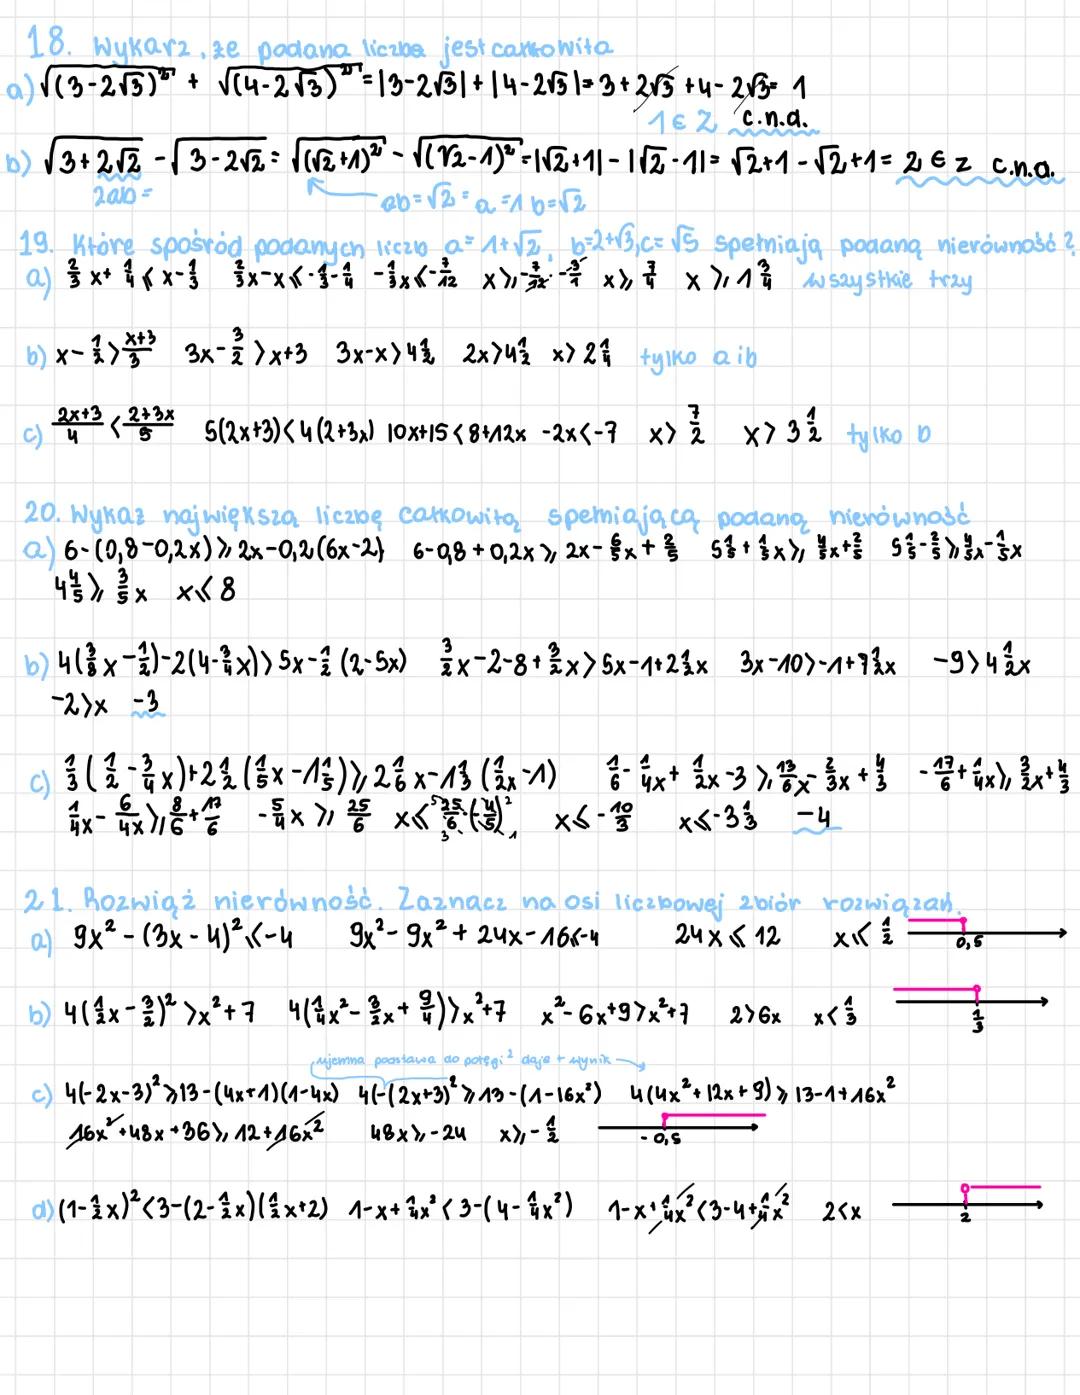 18. Wykarz, że podana liczba jest całkowita
a) √(3-2√3)² + √(4-2√3)² = |3-2√3| + |4-2√3| = 3+2√3 + 4-2√3 = 1
1 ∈ Z c.n.d.
b) √3+2√2 - √3-2√2 = √(√2+1)² - √(√2-1)² = |√2+1| - |√2-1| = √2+1 - √2+1 = 2 ∈ Z c.n.d.
2ab = ab=√2 = a=1 b=√2
19. Które spośród podanych liczb a=1+√2, b=2+√3, c=√5 spełniają podaną nierówność?
a) 2/3 x + 1/4 ≤ x - 1/3 2/3 x - x ≤ -1/3 - 1/4 -1/3 x ≤ -7/12 x ≥ -7/12 · -3/1 x ≥ 7/4 x ≥ 1 3/4 wszystkie trzy
b) x - 1/2 > x+3/3 3x - 3/2 > x+3 3x-x > 4 1/2 2x > 4 1/2 x > 2 1/4 tylko a i b
c) 2x+3/4 < 2+3x/5 5(2x+3) < 4(2+3x) 10x+15 < 8+12x -2x < -7 x > 7/2 x > 3 1/2 tylko b
20. Wykaż największą liczbę całkowitą spełniającą podaną nierówność
a) 6-(0,8-0,2x) ≥ 2x-0,2(6x-2) 6-0,8+0,2x ≥ 2x - 6/5 x + 2/5 5 1/5 + 1/5 x ≥ 4/5 x + 2/5 5 1/5 - 2/5 ≥ 4/5 x - 1/5 x
4 4/5 ≥ 3/5 x x ≤ 8
b) 4(3/8 x - 1/2) - 2(4 - 3/4 x) > 5x - 1/2 (2-5x) 3/2 x - 2 - 8 + 3/2 x > 5x - 1 + 2 1/2 x 3x - 10 > -1 + 7 1/2 x -9 > 4 1/2 x
-2 > x -3
c) 1/3 (1/2 - 3/4 x) + 2 1/2 (1/5 x - 1 1/5) ≥ 2 1/6 x - 1 1/3 (1/2 x - 1) 1/6 - 1/4 x + 1/2 x - 3 ≥ 13/6 x - 2/3 x + 4/3 -17/6 + 1/4 x ≥ 3/2 x + 4/3
1/4 x - 6/4 x ≥ 8/6 + 17/6 -5/4 x ≥ 25/6 x ≤ 25/6 · (-4/5) x ≤ -10/3 x ≤ -3 1/3 -4
21. Rozwiąż nierówność. Zaznacz na osi liczbowej zbiór rozwiązań.
a) 9x² - (3x - 4)² ≤ -4 9x² - 9x² + 24x - 16 ≤ -4 24x ≤ 12 x ≤ 1/2 0,5
b) 4(1/2 x - 3/2)² > x² + 7 4(1/4 x² - 3/2 x + 9/4) > x² + 7 x² - 6x + 9 > x² + 7 2 > 6x x < 1/3 1/3
ujemna podstawa do potęgi 2 daje + wynik
c) 4(-2x-3)² ≥ 13 - (4x+1)(1-4x) 4(-(2x+3)² ≥ 13 - (1-16x²) 4(4x² + 12x + 9) ≥ 13 - 1 + 16x²
16x² + 48x + 36 ≥ 12 + 16x² 48x ≥ -24 x ≥ -1/2 -0,5
d) (1 - 1/2 x)² < 3 - (2 - 1/2 x)(1/2 x + 2) 1 - x + 1/4 x² < 3 - (4 - 1/4 x²) 1 - x + 1/4 x² < 3 - 4 + 1/4 x² 2 < x 2